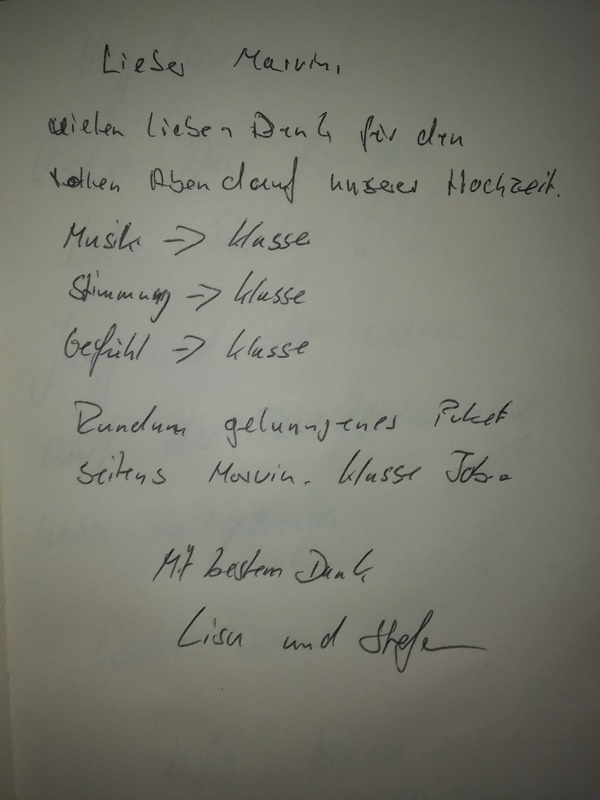 Lieber Marvin,
vielen lieben Dank für den
tollen Abend auf unserer Hochzeit.
Musik => klasse
Stimmung => klasse
Gefühl => klasse
Rundum gelungenes Paket
seitens Marvin. Klasse Job.
Mit bestem Dank
Lisa und Stefan